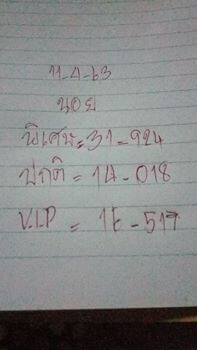 11-4-63
นอย
พิเศษ = 31-924
ปกติ = 14-018
V.I.P = 16-517